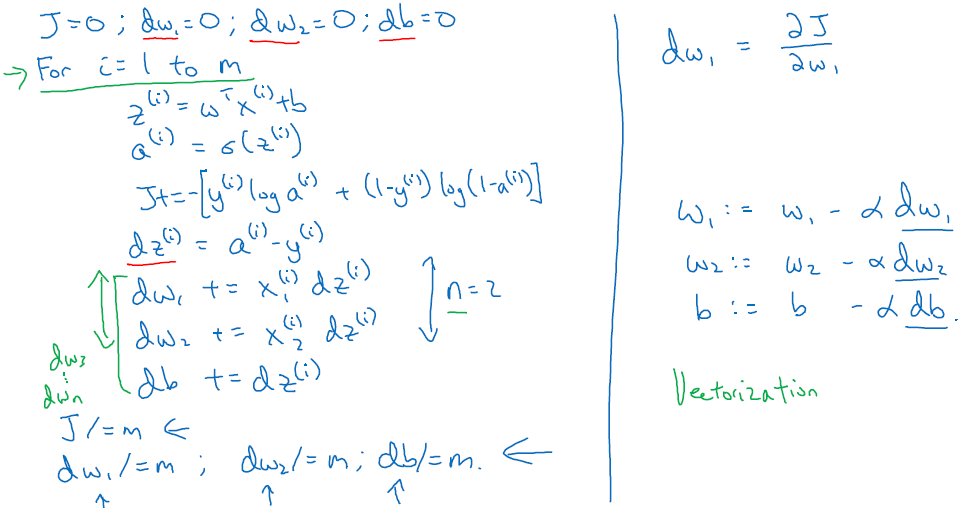 J=0 ; dw₁=0 ; dw₂=0 ; db=0
→ For i = 1 to m
z⁽ⁱ⁾ = wᵀx⁽ⁱ⁾+b
a⁽ⁱ⁾ = σ(z⁽ⁱ⁾)
J+=-[y⁽ⁱ⁾ log a⁽ⁱ⁾ + (1-y⁽ⁱ⁾) log(1-a⁽ⁱ⁾)]
dz⁽ⁱ⁾ = a⁽ⁱ⁾-y⁽ⁱ⁾
dw₁ += x₁⁽ⁱ⁾ dz⁽ⁱ⁾
dw₂ += x₂⁽ⁱ⁾ dz⁽ⁱ⁾
n=2
db += dz⁽ⁱ⁾
dw₃
⋮
dwₙ
J/=m ←
dw₁/=m ; dw₂/=m ; db/=m. ←
dw₁ = ∂J/∂w₁
w₁ := w₁ - α dw₁
w₂ := w₂ - α dw₂
b := b - α db.
Vectorization